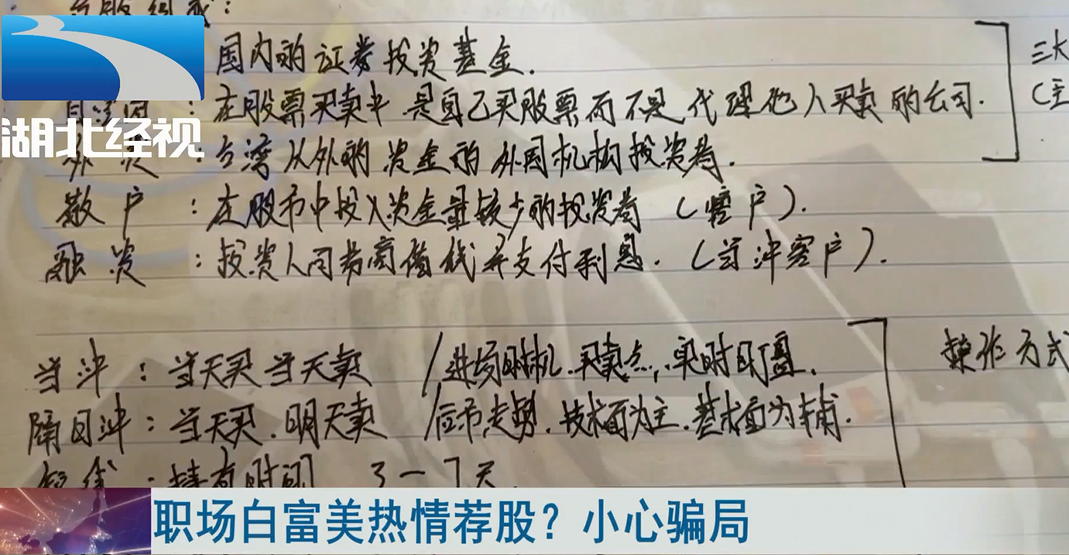 国内的证券投资基金.
三大
自营商:在股票买卖中是自己买股票而不是代理他人买卖的公司.
(主
湖北经视
外资:台湾以外的资金的外国机构投资者.
散户:在股市中投入资金量较少的投资者(客户).
融资:投资人向券商借钱并支付利息.(当冲客户).
当冲:当天买当天卖 /进场时机.买卖点,实时盯盘.
操作方式
隔日冲:当天买.明天卖 /后市走势.技术面为主.基本面为辅.
短线:持有时间 3-7天
职场白富美热情荐股?小心骗局